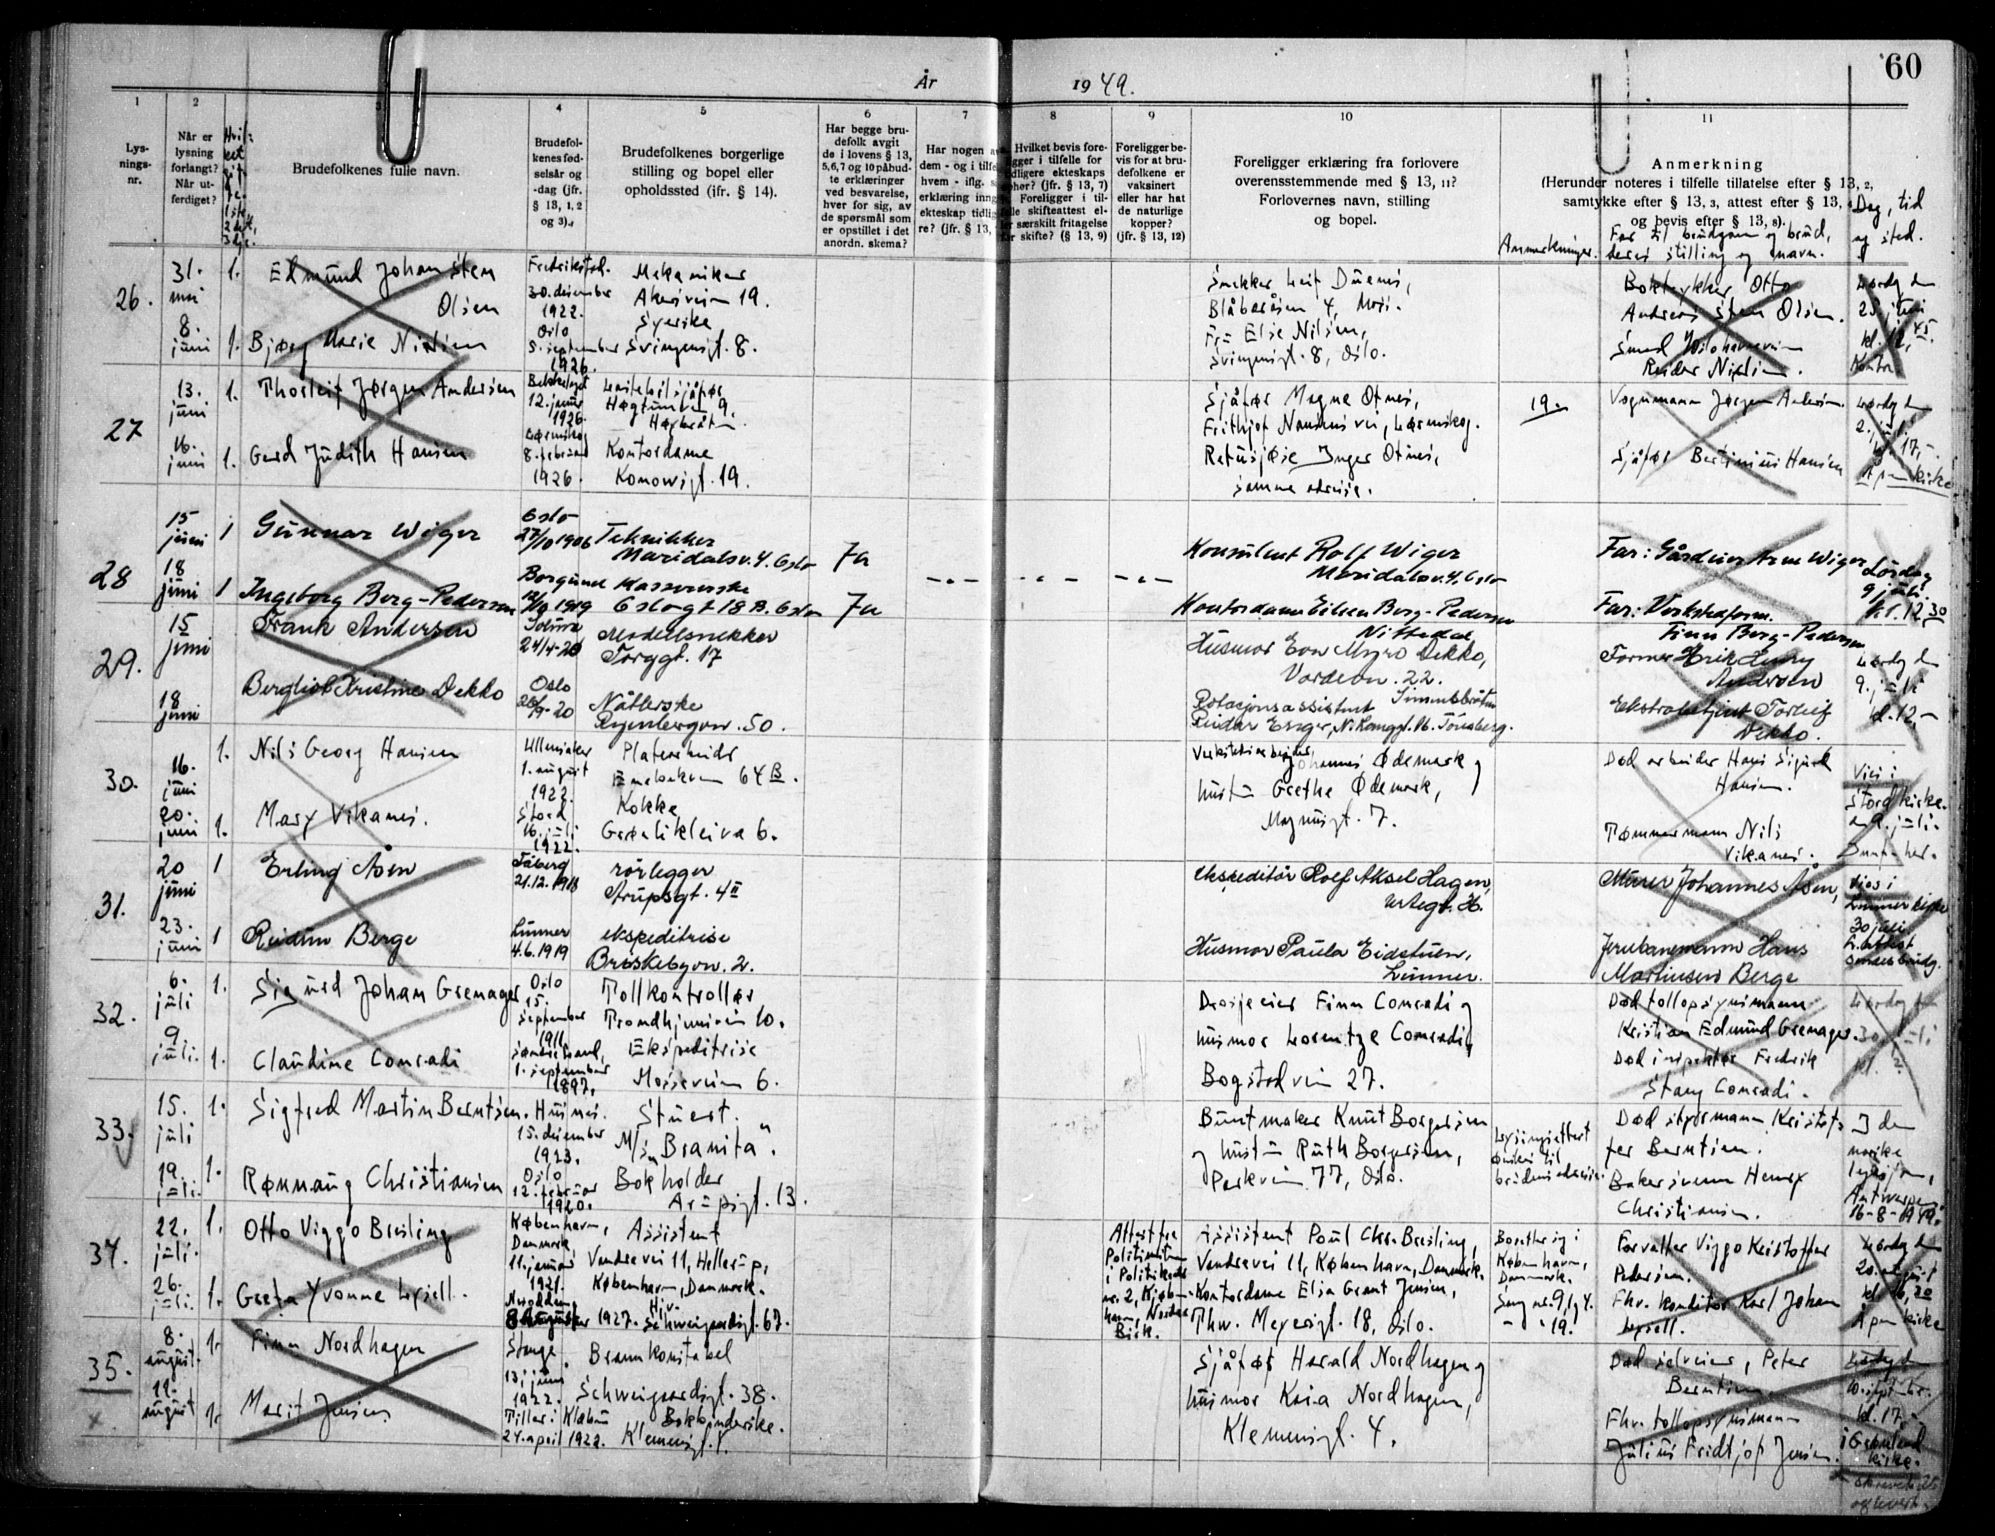 60
År 1949.
1
Lysnings-
nr.
2
Når er
lysning
forlangt?
Når ut-
ferdiget?
3
Brudefolkenes fulle navn.
4
Brudefol-
kenes fød-
selsår og
-dag (jfr.
§ 13, 1, 2
og 3).
5
Brudefolkenes borgerlige
stilling og bopel eller
opholdssted (ifr. § 14).
6
Har begge bru-
defolk avgit
de i lovens § 13,
5,6,7 og 10 påbud-
te erklæringer
ved besvarelse,
hver for sig, av
de spørsmål som
er opstillet i det
anordn. skema?
7
Har nogen
dem - og i
hvem - iflg.
erklæring
ekteskap
re? (jfr. § 13,
8
Hvilket bevis fore-
ligger i tilfelle for
ekteskaps
(jfr. § 13, 7)
Foreligger i til-
skifteattest el-
særskilt fritagelse
skifte? (§ 13, 9)
9
Foreligger be-
vis for at bru-
defolkene er
vaksinert
eller har hat
de naturlige
kopper?
(jfr. § 13, 12)
10
Foreligger erklæring fra forlovere
overensstemmende med § 13, 11?
Forlovernes navn, stilling
og bopel.
Anmerkninger.
11
Anmerkning
(Herunder noteres i tilfelle tillatelse efter § 13, 2,
samtykke efter § 13, 3, attest efter § 13,
og bevis efter § 13, 8).
Far til brudgom og brud,
deres stilling og navn.
Dag, tid
og sted.
26.
31.
mai
8.
juni
1.
1.
Edmund Johan Sten
Olsen
Bjørg Marie Nilsen
Fredrikstad.
30. desember
1922.
Oslo
5. september
1926.
Mekaniker
Akersveien 19.
Syerske
Svingensgt. 8.
Snekker Leif Duenes,
Blåbæråsen 4, Moss.
Fru Else Nilsen,
Svingensgt. 8, Oslo.
Boktrykker Otto
Andreas Sten Olsen.
Smed
Reidar Nilsen.
Lørdag den
25. juni
kl. 12,45.
Kontra
27
13.
juni
16.
juni
1.
1.
Thorleif Jørgen Andersen
Gerd Judith Hansen
12. januar
1926.
Lørenskog
8. februar
1926.
Lastebilsjåfør
Høgtunveien 9.
Kontordame
Konowsgt. 19.
Sjåfør Magne Otnes,
Frithjof Nansens vei, Lørenskog.
Retusjøse Inger Otnes,
samme adresse.
19.
Vognmann Jørgen Andersen.
Sjåfør Bertinius Hansen
Lørdag den
2. juli
kl. 17,-
Åpen kirke
28
15
juni
18
juni
1
1
Gunnar Wiger
Ingeborg Berg-Pedersen
Oslo
27/10 1906
Borgund
1919
Tekniker
Maridalsv. 4. Oslo
Kassererske
Oslogt 18 B. Oslo
Ja
Ja
- - -
- - -
- - -
Konsulent Rolf Wiger
Maridalsv. 4. Oslo
Kontordame Eilen Berg-Pedersen
Nittedal
Far: Gårdeier Arne Wiger
Far: Verksteform.
Finn Berg-Pedersen
Lørdag
9 juli
kl. 12,30
29.
15
juni
18
juni
Frank Andersen
Bergliot Kristine Dekko
24/4-20
Oslo
Modellsnekker
Torggt. 17
Nåtlerske
Ryenbergvn. 50.
Husmor Eva Myro Dekko,
Vardevn. 22.
Simensbråten
Rotasjonsassistent
Reidar Enger, N. Langgt. 16. Tönsberg.
Former Erik Henry
Andersen
Ekstrabetjent Torleif
Dekko.
Lørdag den
9. juli
kl. 12-
30.
16.
juni
20.
juni
1.
1.
Nils Georg Hansen
Mary Vikanes.
Ullensaker
1. august
1922.
Stord
16. juli
1922.
Platesmed
Enebakkvn 64 B.
Kokke
Grønlikleiva 6.
Verkstedarbeider
Johannes Ødemark og
hustru Grethe Ødemark,
Magnusgt. 7.
Død arbeider Hans Sigurd
Hansen.
Tømmermann Nils
Vikanes.
Vies i
Stord kirke.
9. juli.
31.
20
juni
23.
juni
1
1
Erling Åsen
Reidun Berge
Fåberg
21.12.1918
Lunner
4.6.1919
rörlegger
Arupsgt. 4 II
ekspeditrise
Briskebyvn. 2.
ekspeditör Rolf Aksel Hagen,
Urtegt.
Husmor Paula Eidstuen,
Lunner.
Murer Johannes Åsen,
Jernbanemann Hans
Martinsen Berge
Vies i
Lunner kirke
30 juli.
32.
6.
juli
9
juli.
1.
1.
Sigurd Johan Grenager
Claudine Conradi
Oslo
15.
september
1911.
1. september
1897.
Tollkontrollør
Trondhjemsveien 10.
Ekspeditrise
Mosseveien 6.
Drosjeeier Finn Conradi og
husmor Lorentze Conradi,
Bogstadveien 27.
Død tollopsynsmann
Kristian Edmund Grenager.
Død inspektør Fredrik
Stang Conradi.
Lørdag den
30. juli
kl. 12
33.
15.
juli
19.
juli.
1.
1.
Sigfred Martin Berntsen.
Rønnaug Christiansen
Husnes.
15. desember
1923.
Oslo
12. februar
1920.
Stuert.
M/s „Branita".
Bokholder
Arupsgt. 13.
Buntmaker Knut Borgersen
og hustru Ruth Borgersen,
Parkveien 77, Oslo.
Lysningsattest
ønskes til
brudens adresse.
Død styrmann Kristof-
fer Berntsen.
Bakersvenn Henry
Christiansen.
I den
norske
Antwerpen
16-8-1949.
34.
22.
juli.
26.
juli.
1.
1.
Otto Viggo Bresling
Greta Yvonne Lysell.
København,
Danmark,
11. januar
1921.
Notodden
8 august 1927.
Assistent
Vandrevei 11, Hellerup,
København, Danmark.
Hjv.
Schweigaardsgt. 67.
Attest fra
Politimesteren
i Politikreds
nr. 2, Køben-
havn, Nordre
Birk.
Assistent Poul Chr. Bresling,
Vandrevei 11, København, Danmark.
Kontordame Elsa Grant Jensen,
Thv. Meyersgt. 18, Oslo.
Bosetter sig i
København,
Danmark.
Sang nr. 9, 1 og 4.
- " - 19.
Forvalter Viggo Kristoffer
Pedersen.
Fhv. konditor Karl Johan
Lysell.
Lørdag den
20. august
kl. 16,20
Åpen kirke
35.
x
8.
august.
11.
august
1.
1.
Finn Nordhagen
Marit Jensen
Stange
13. juni
1922.
Tiller i Klæbu
24. april 1922.
Brannkonstabel
Schweigaardsgt. 38.
Bokbinderske.
Klemensgt. 1.
Sjåfør Harald Nordhagen og
husmor Kaia Nordhagen,
Klemensgt. 4.
Død selveier, Peter
Berntsen.
Fhv. tollopsynsmann
Julius Fridtjof Jensen.
Lørdag den
10. septbr.
kl. 17,-
i Grønland
kirke.